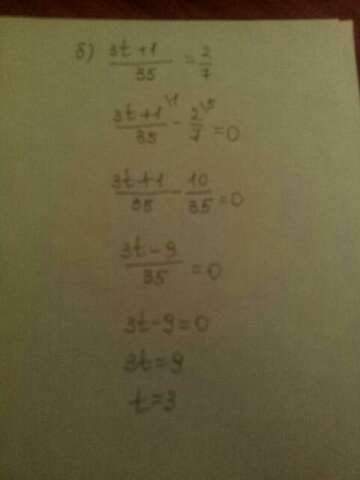 б) (3t+1)/35 = 2/7
(3t+1)/35 \1 - 2/7 \5 = 0
(3t+1)/35 - 10/35 = 0
(3t-9)/35 = 0
3t-9=0
3t=9
t=3